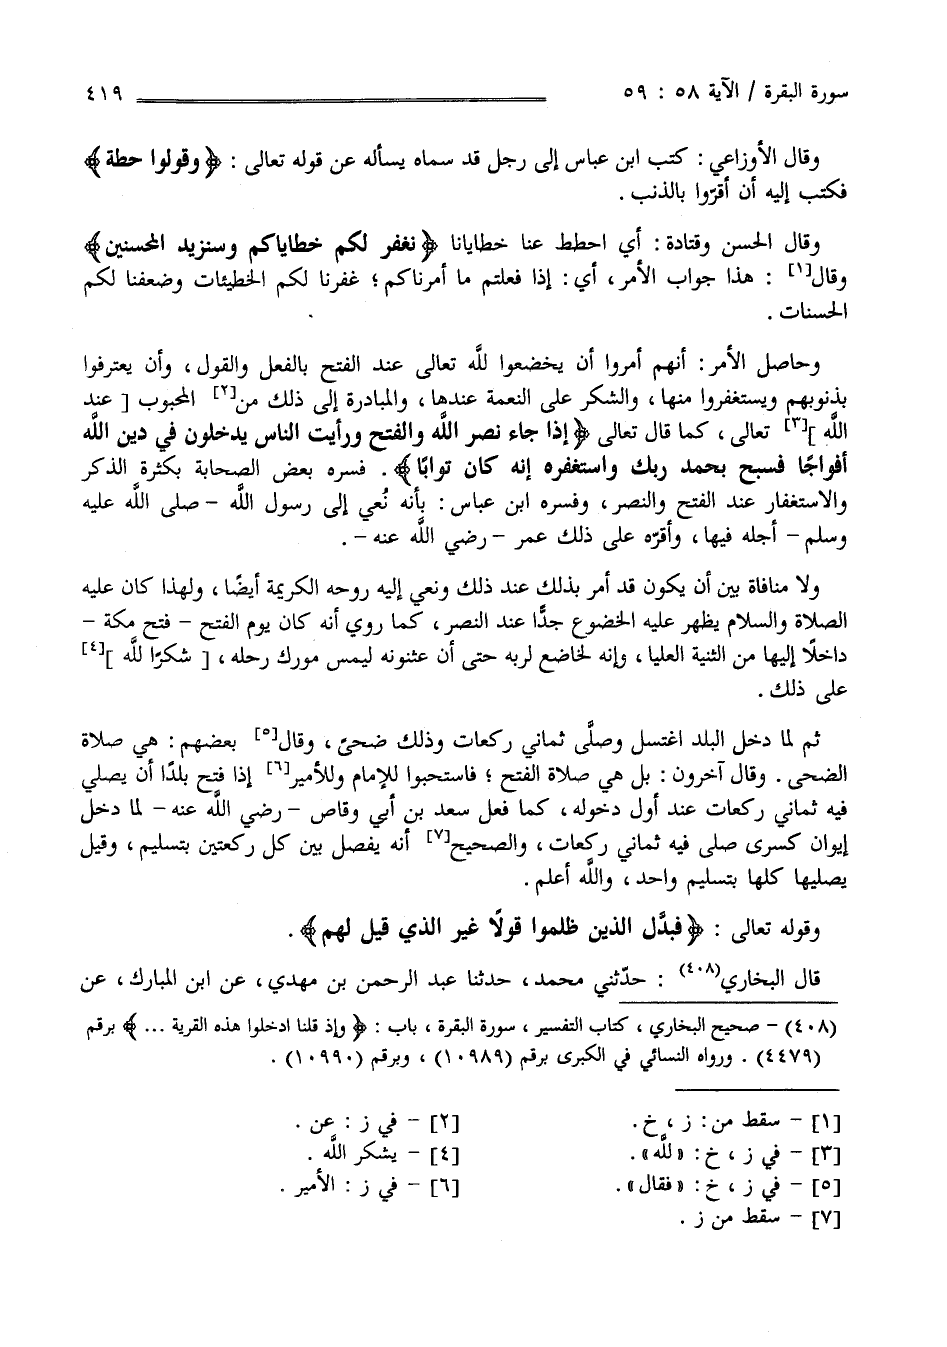 سورة البقرة / الآية ٥٨ : ٥٩ ٤١٩
وقال الأوزاعي : كتب ابن عباس إلى رجل قد سماه يسأله عن قوله تعالى : ﴿ وقولوا حطة ﴾
فكتب إليه أن أقرّوا بالذنب .
وقال الحسن وقتادة : أي احطط عنا خطايانا ﴿ نغفر لكم خطاياكم وسنزيد المحسنين ﴾
وقال[١] : هذا جواب الأمر ، أي : إذا فعلتم ما أمرناكم ؛ غفرنا لكم الخطيئات وضعفنا لكم
الحسنات .
وحاصل الأمر : أنهم أمروا أن يخضعوا للَّه تعالى عند الفتح بالفعل والقول ، وأن يعترفوا
بذنوبهم ويستغفروا منها ، والشكر على النعمة عندها ، والمبادرة إلى ذلك من[٢] المحبوب [ عند
اللَّه ][٣] تعالى ، كما قال تعالى ﴿ إذا جاء نصر اللَّه والفتح ورأيت الناس يدخلون في دين اللَّه
أفواجًا فسبح بحمد ربك واستغفره إنه كان توابًا ﴾ . فسره بعض الصحابة بكثرة الذكر
والاستغفار عند الفتح والنصر ، وفسره ابن عباس : بأنه نُعي إلى رسول اللَّه – صلى اللَّه عليه
وسلم – أجله فيها ، وأقرّه على ذلك عمر – رضي اللَّه عنه – .
ولا منافاة بين أن يكون قد أمر بذلك عند ذلك ونعي إليه روحه الكريمة أيضًا ، ولهذا كان عليه
الصلاة والسلام يظهر عليه الخضوع جدًّا عند النصر ، كما روي أنه كان يوم الفتح – فتح مكة –
داخلًا إليها من الثنية العليا ، وإنه لخاضع لربه حتى أن عثنونه ليمس مورك رحله ، [ شكرًا للَّه ][٤]
على ذلك .
ثم لما دخل البلد اغتسل وصلَّى ثماني ركعات وذلك ضحىً ، وقال[٥] بعضهم : هي صلاة
الضحى . وقال آخرون : بل هي صلاة الفتح ؛ فاستحبوا للإمام وللأمير[٦] إذا فتح بلدًا أن يصلي
فيه ثماني ركعات عند أول دخوله ، كما فعل سعد بن أبي وقاص – رضي اللَّه عنه – لما دخل
إيوان كسرى صلى فيه ثماني ركعات ، والصحيح[٧] أنه يفصل بين كل ركعتين بتسليم ، وقيل
يصليها كلها بتسليم واحد ، واللَّه أعلم .
وقوله تعالى : ﴿ فبدَّل الذين ظلموا قولًا غير الذي قيل لهم ﴾ .
قال البخاري(٤٠٨) : حدّثني محمد ، حدثنا عبد الرحمن بن مهدي ، عن ابن المبارك ، عن
(٤٠٨) – صحيح البخاري ، كتاب التفسير ، سورة البقرة ، باب : ﴿ وإذ قلنا ادخلوا هذه القرية ... ﴾ برقم
(٤٤٧٩) . ورواه النسائي في الكبرى برقم (١٠٩٨٩) ، وبرقم (١٠٩٩٠) .
[١] – سقط من : ز ، خ . [٢] – في ز : عن .
[٣] – في ز ، خ : « للَّه » . [٤] – يشكر اللَّه .
[٥] – في ز ، خ : « فقال » . [٦] – في ز : الأمير .
[٧] – سقط من ز .